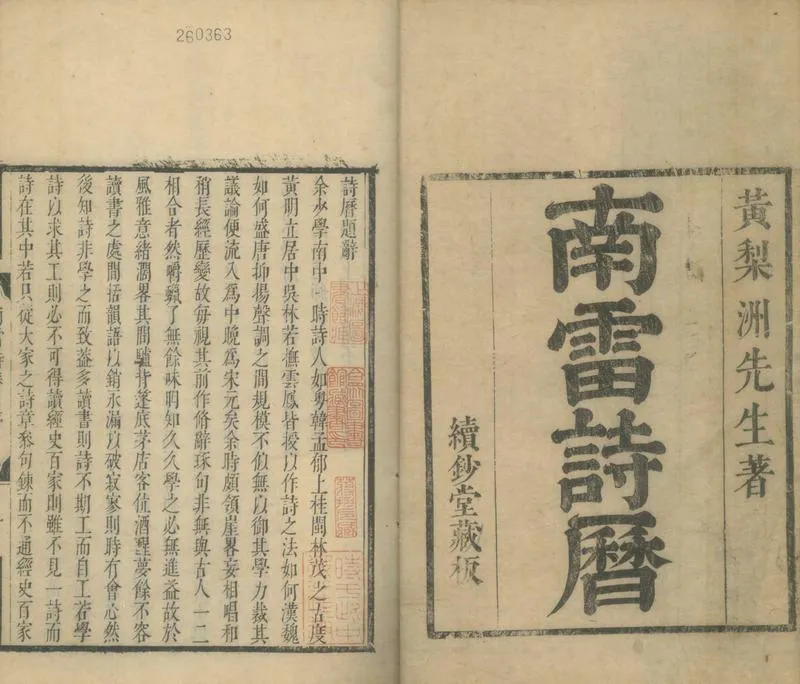 黃梨洲先生著
南雷詩曆
續鈔堂藏板
260363
詩曆題辭
余少學南中一時詩人如粵韓孟郁上桂閩林茂之古度
黃明立居中吳林若撫雲鳳皆授以作詩之法如何漢魏
如何盛唐抑揚聲調之間規模不似無以御其學力裁其
議論便流入為中晚為宋元矣余時頗領崖畧妄相唱和
稍長經歷變故每視其前作脩辭琢句非無與古人一二
相合者然嚼蠟了無餘味明知久久學之必無進益故於
風雅意緒濶畧其間驢背蓬底茅店客位酒醒夢餘不容
讀書之處間括韻語以銷永漏以破寂寥則時有會心然
後知詩非學之而致蓋多讀書則詩不期工而自工若學
詩以求其工則必不可得讀經史百家則雖不見一詩而
詩在其中若只從大家之詩章參句鍊而不通經史百家